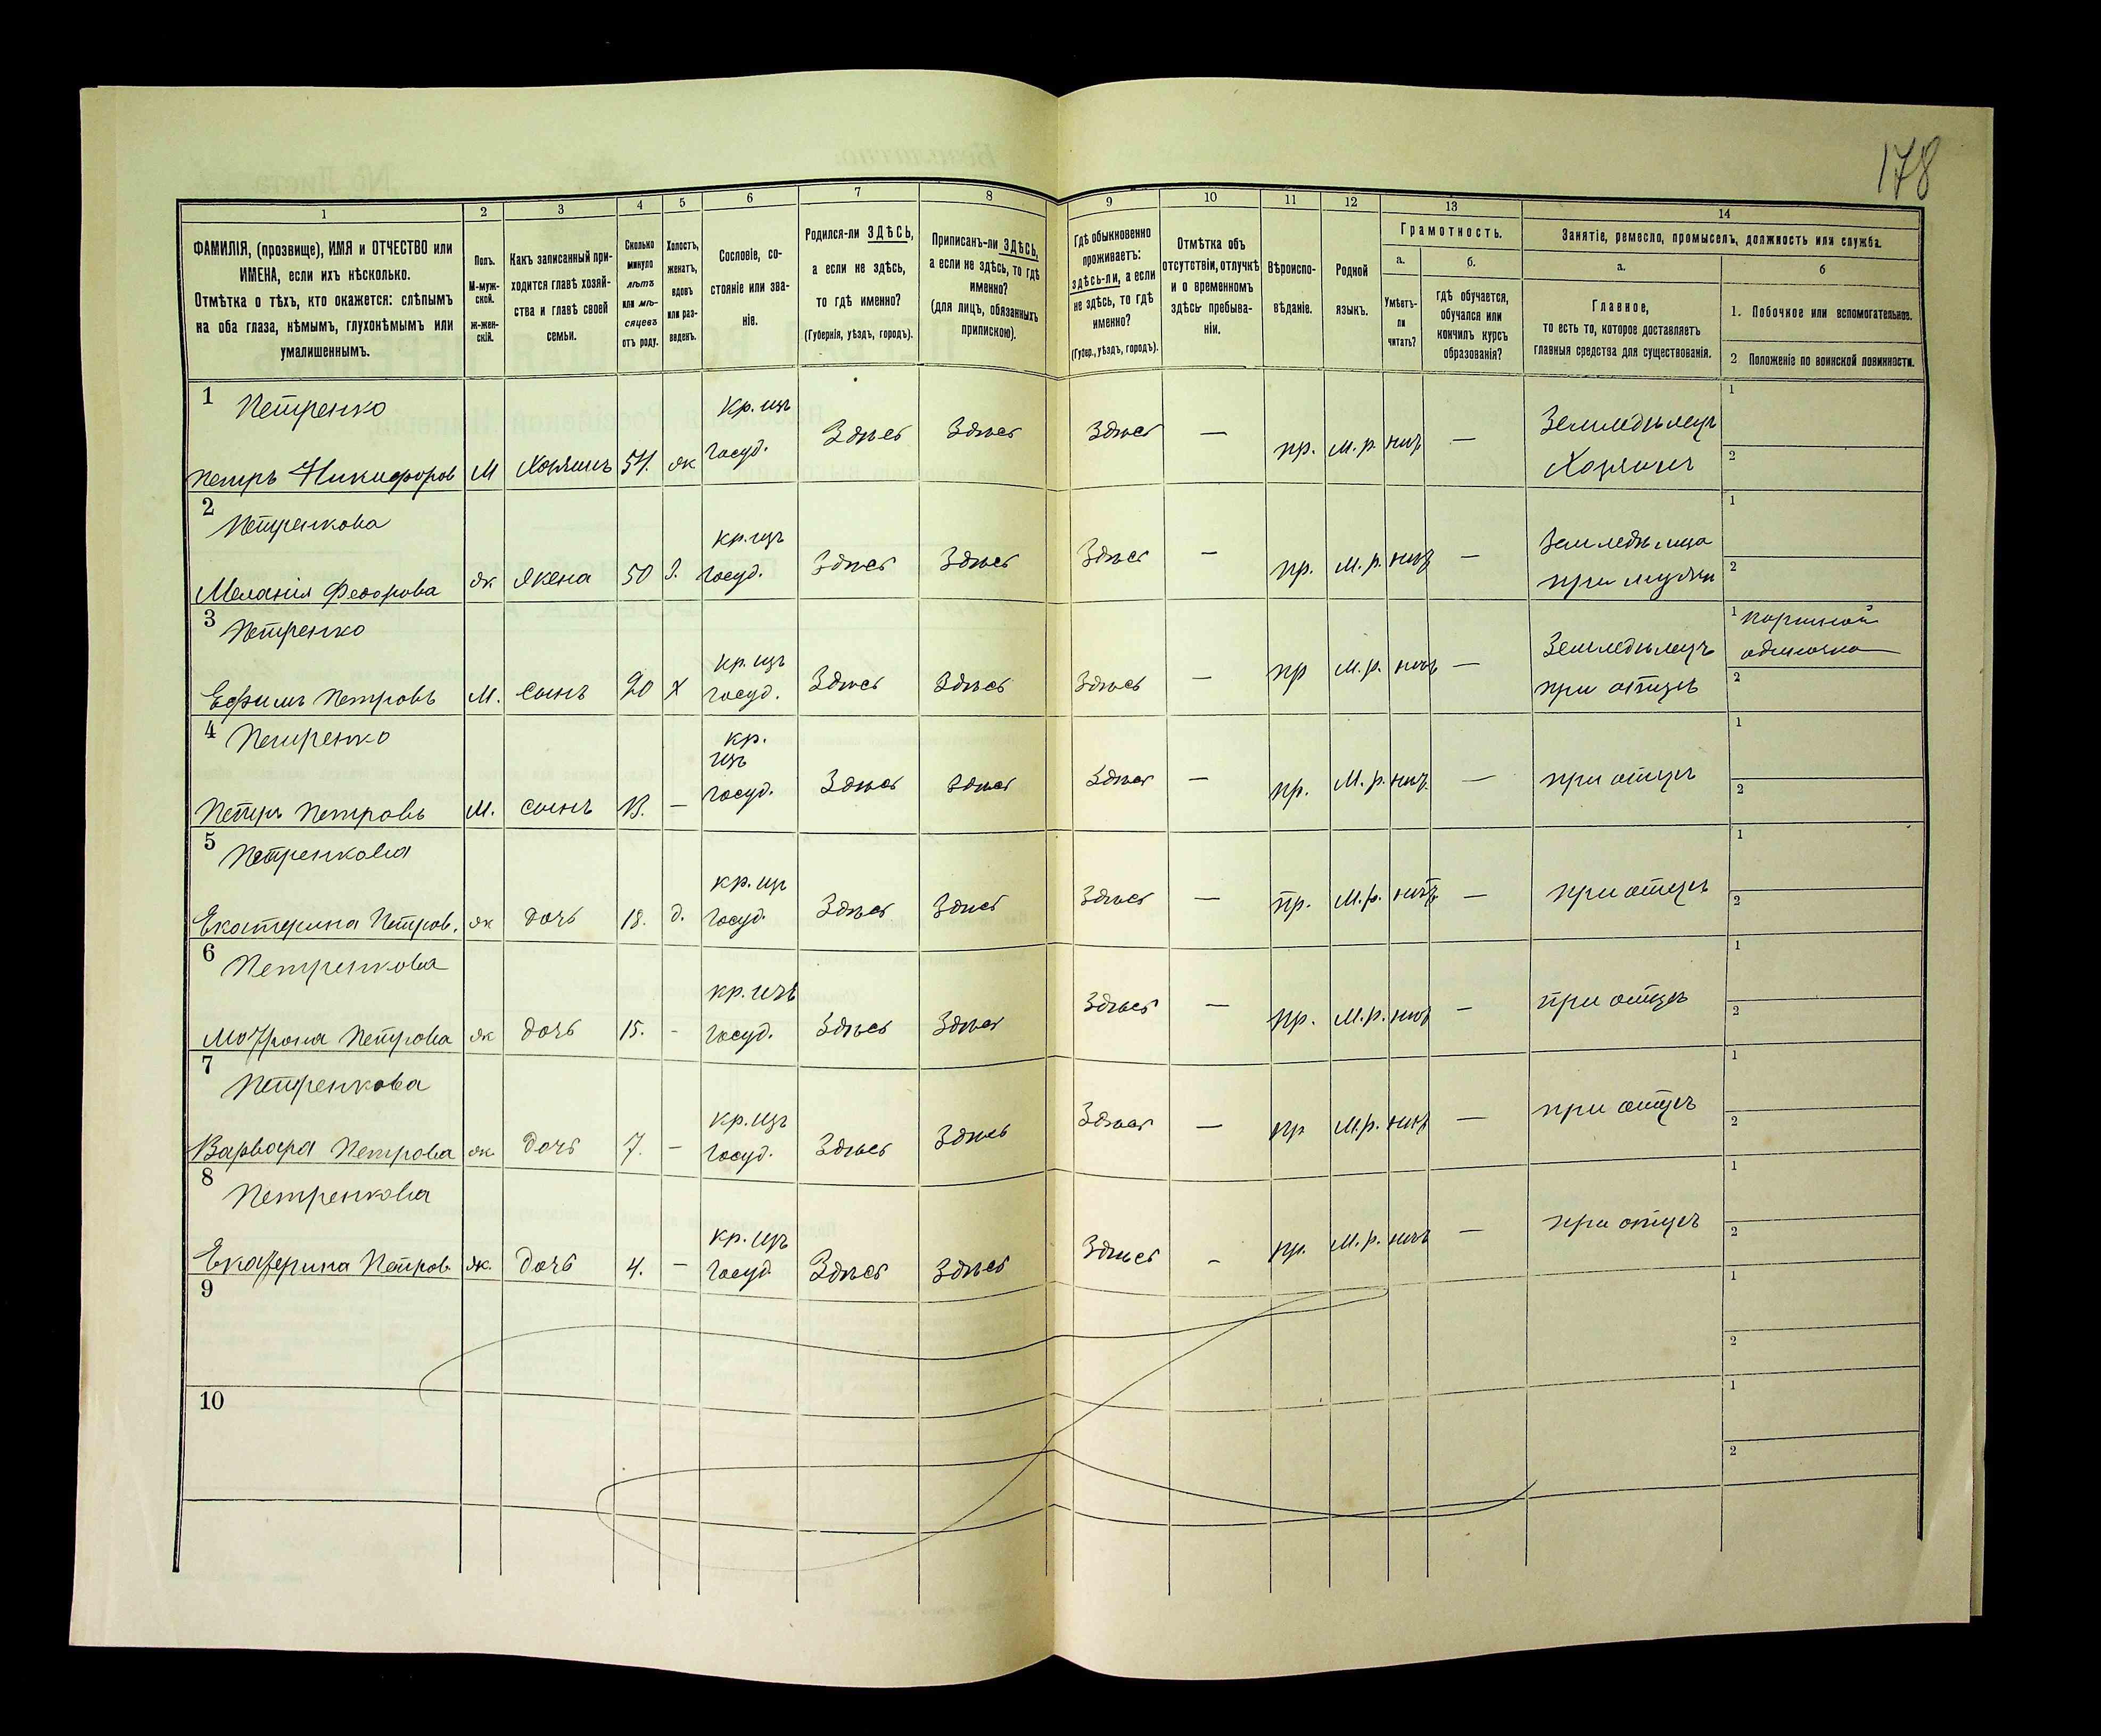 178
1
2
3
4
5
6
7
8
9
10
11
12
13
14
ФАМИЛІЯ, (прозвище), ИМЯ и ОТЧЕСТВО или
ИМЕНА, если ихъ нѣсколько.
Отмѣтка о тѣхъ, кто окажется: слѣпымъ
на оба глаза, нѣмымъ, глухонѣмымъ или
умалишеннымъ.
Полъ.
М-муж-
ской.
ж-жен-
скій.
Какъ записанный при-
ходится главѣ хозяй-
ства и главѣ своей
семьи.
Сколько
минуло
лѣтъ
или мѣ-
сяцевъ
отъ роду.
Холостъ,
женатъ,
вдовъ
или раз-
веденъ.
Сословіе, со-
стояніе или зва-
ніе.
Родился-ли ЗДѢСЬ,
а если не здѣсь,
то гдѣ именно?
(Губернія, уѣздъ, городъ).
Приписанъ-ли ЗДѢСЬ,
а если не здѣсь, то гдѣ
именно?
(для лицъ, обязанныхъ
припискою).
Гдѣ обыкновенно
проживаетъ:
здѣсь-ли, а если
не здѣсь, то гдѣ
именно?
(Губер., уѣздъ, городъ).
Отмѣтка объ
отсутствіи, отлучкѣ
и о временномъ
здѣсь пребыва-
ніи.
Вѣроиспо-
вѣданіе.
Родной
языкъ.
Грамотность.
а.
Умѣетъ-
ли
читать?
б.
гдѣ обучается,
обучался или
кончилъ курсъ
образованія?
Занятіе, ремесло, промыселъ, должность или служба.
а.
Главное,
то есть то, которое доставляетъ
главныя средства для существованія.
б
1. Побочное или вспомогательное.
2 Положеніе по воинской повинности.
1 Петренко
Петръ Никифоров М Хозяинъ 54. ж кр. изъ госуд. Здѣсь Здѣсь Здѣсь — пр. М. р. нѣтъ — Земледѣлецъ Хозяинъ 1 2
2 Петренкова
Меланія Федорова ж жена 50 З. кр. изъ госуд. Здѣсь Здѣсь Здѣсь — пр. М. р. нѣтъ — Земледѣлица при мужѣ 1 2
3 Петренко
Ефимъ Петровъ М. сынъ 20 Х кр. изъ госуд. Здѣсь Здѣсь Здѣсь — пр М. р. нѣтъ — Земледѣлецъ при отцѣ 1 2
4 Петренко
Петръ Петровъ М. сынъ — кр. изъ госуд. Здѣсь Здѣсь Здѣсь — пр. М. р. нѣтъ — при отцѣ 1 2
5 Петренкова
Екатерина Петров. ж дочь 18. д. кр. изъ госуд. Здѣсь Здѣсь Здѣсь — пр. М. р. нѣтъ — при отцѣ 1 2
6 Петренкова
Мотрона Петрова ж дочь 15. - кр. изъ госуд. Здѣсь Здѣсь Здѣсь — пр. М. р. нѣтъ — при отцѣ 1 2
7 Петренкова
Варвара Петрова ж дочь 7. — кр. изъ госуд. Здѣсь Здѣсь Здѣсь — пр М. р. нѣтъ — при отцѣ 1 2
8 Петренкова
Екатерина Петров. ж. дочь 4. — кр. изъ госуд Здѣсь Здѣсь Здѣсь - пр. М. р. нѣтъ — при отцѣ 1 2
9 1 2
10 1 2